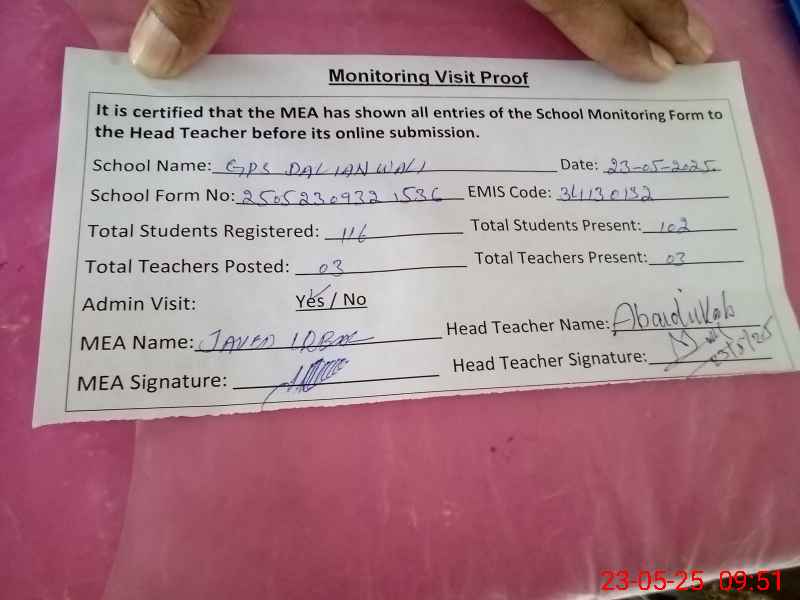 Monitoring Visit Proof
It is certified that the MEA has shown all entries of the School Monitoring Form to
the Head Teacher before its online submission.
School Name: GPS DALIANWALI Date: 23-05-2025.
School Form No: 2505230932 1536 EMIS Code: 34130132
Total Students Registered: 116 Total Students Present: 102
Total Teachers Posted: 03 Total Teachers Present: 03
Admin Visit: Yes / No
MEA Name: JAVED IQBAL Head Teacher Name:
MEA Signature: Head Teacher Signature: 23/5/25
23-05-25 09:51